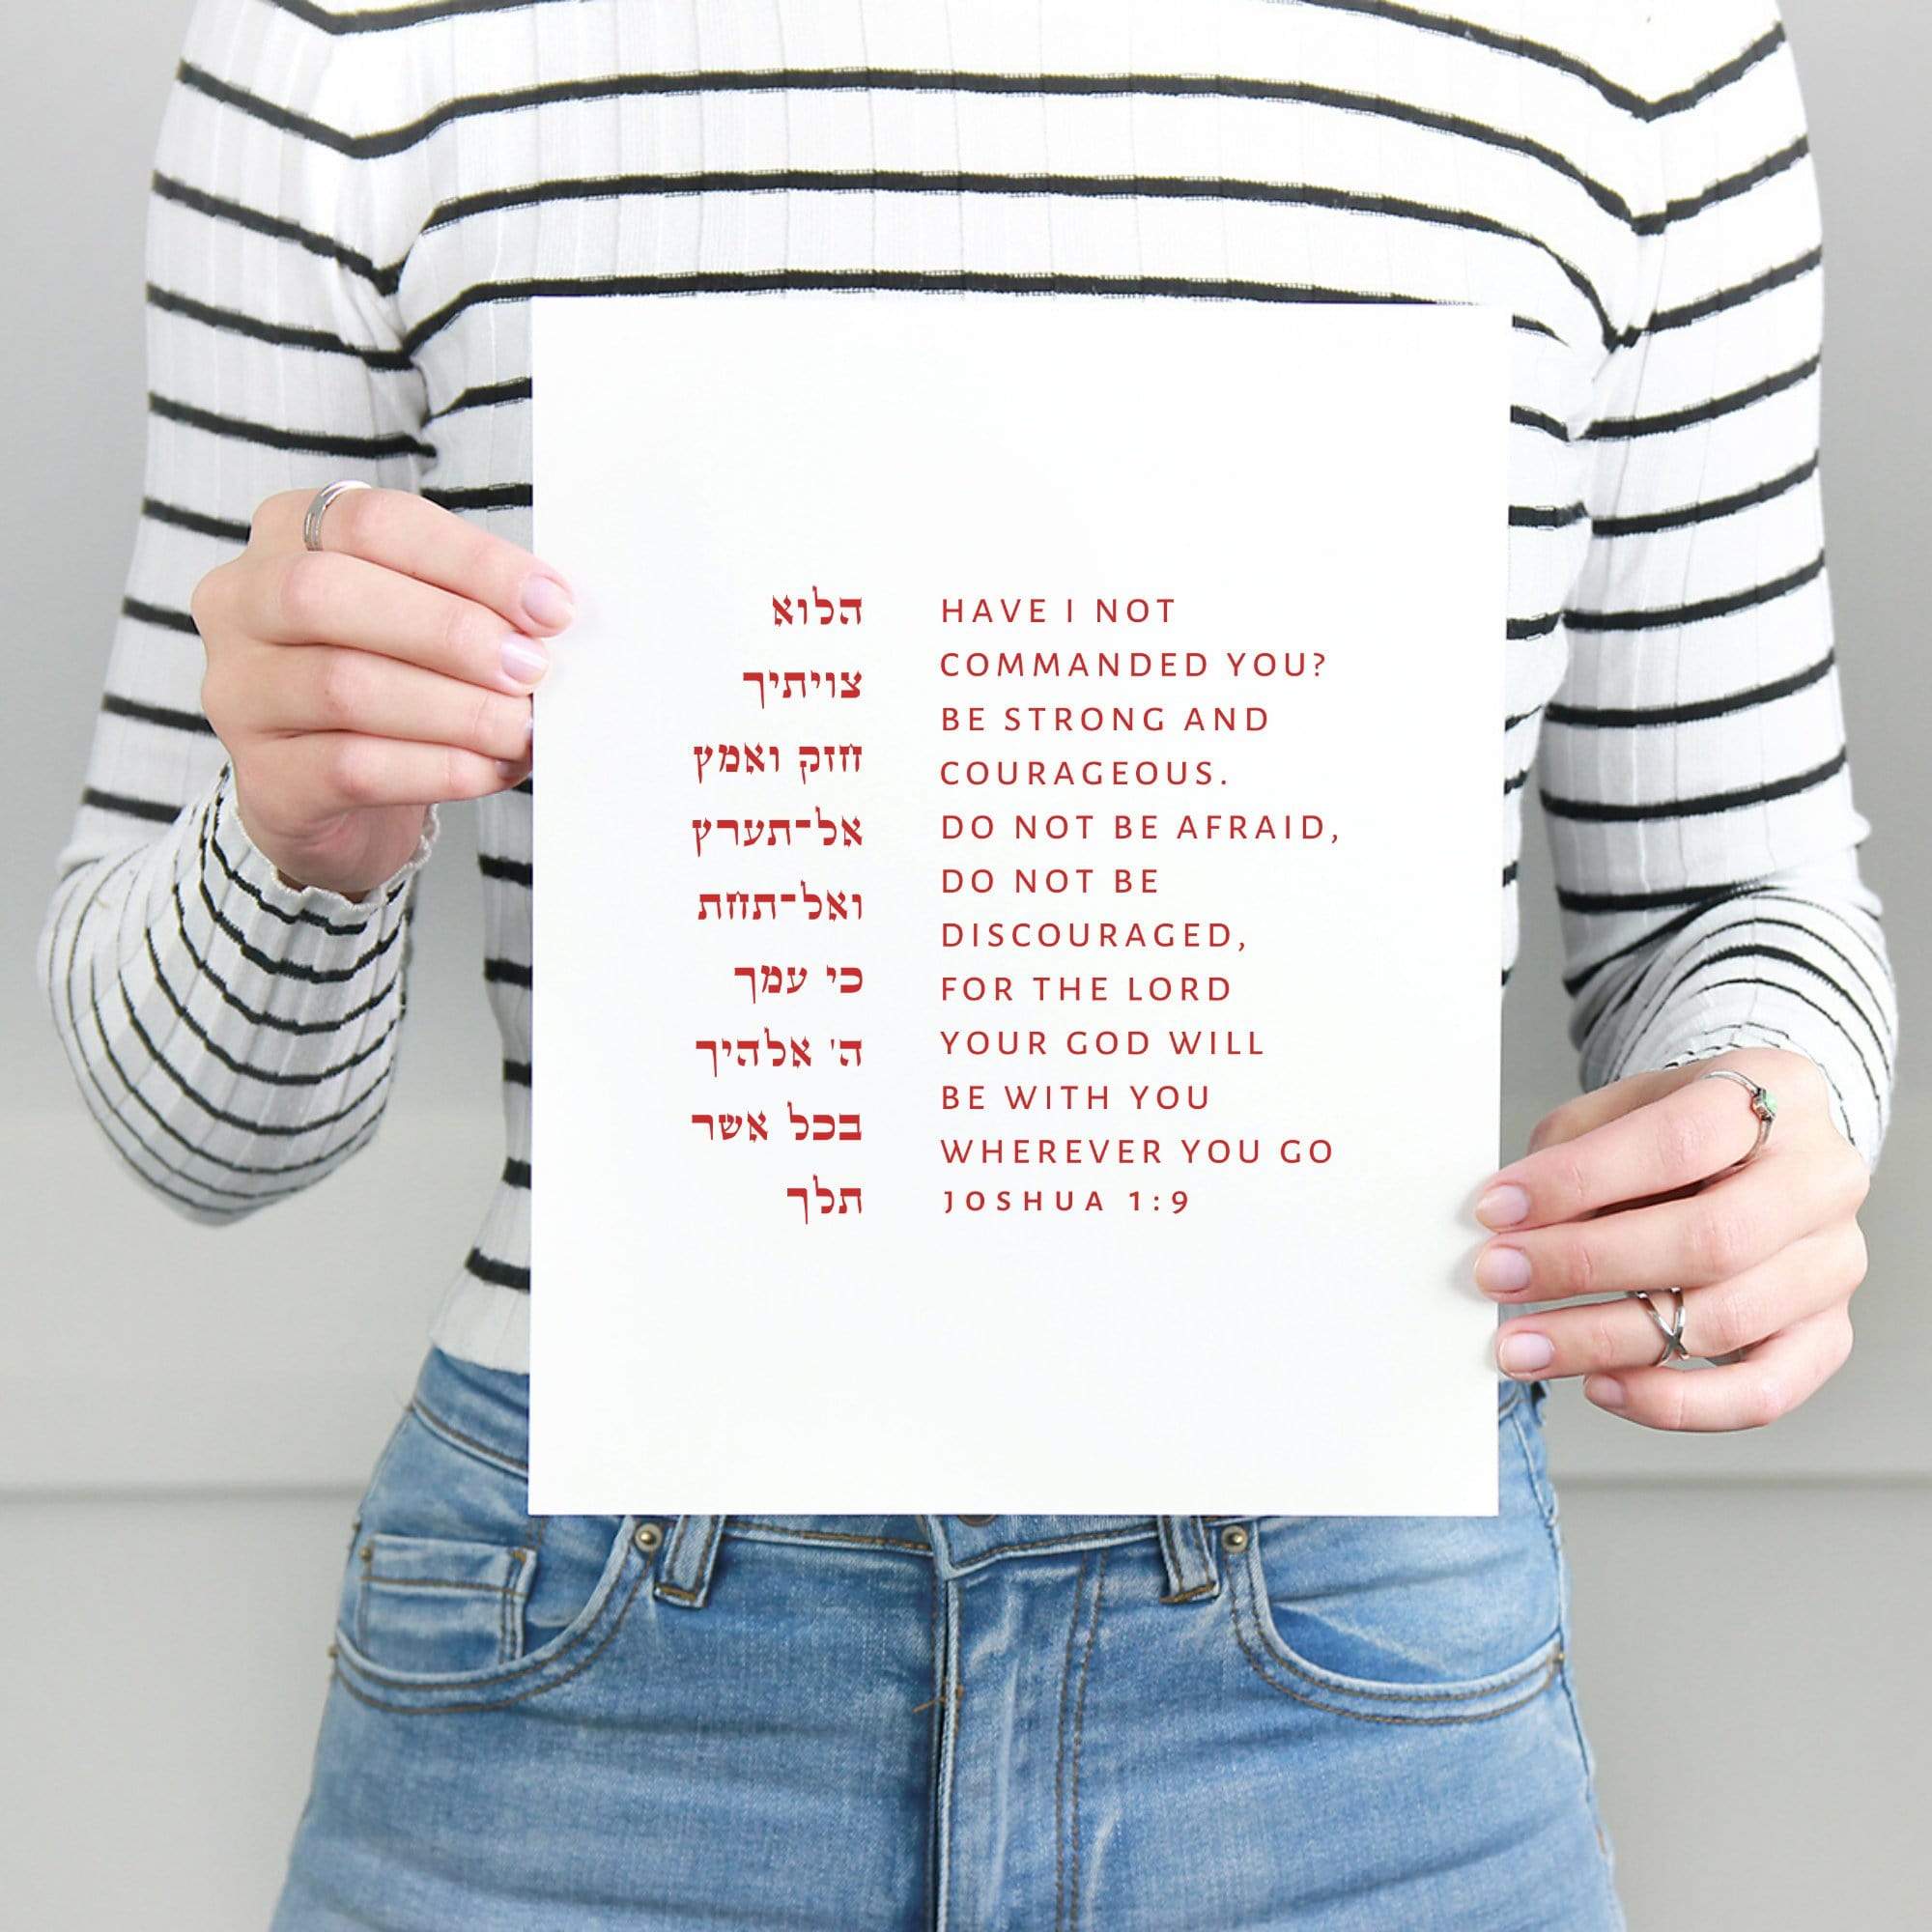 הלוא
צויתיך
חזק ואמץ
אל־תערץ
ואל־תחת
כי עמך
ה' אלהיך
בכל אשר
תלך
HAVE I NOT
COMMANDED YOU?
BE STRONG AND
COURAGEOUS.
DO NOT BE AFRAID,
DO NOT BE
DISCOURAGED,
FOR THE LORD
YOUR GOD WILL
BE WITH YOU
WHEREVER YOU GO
JOSHUA 1:9